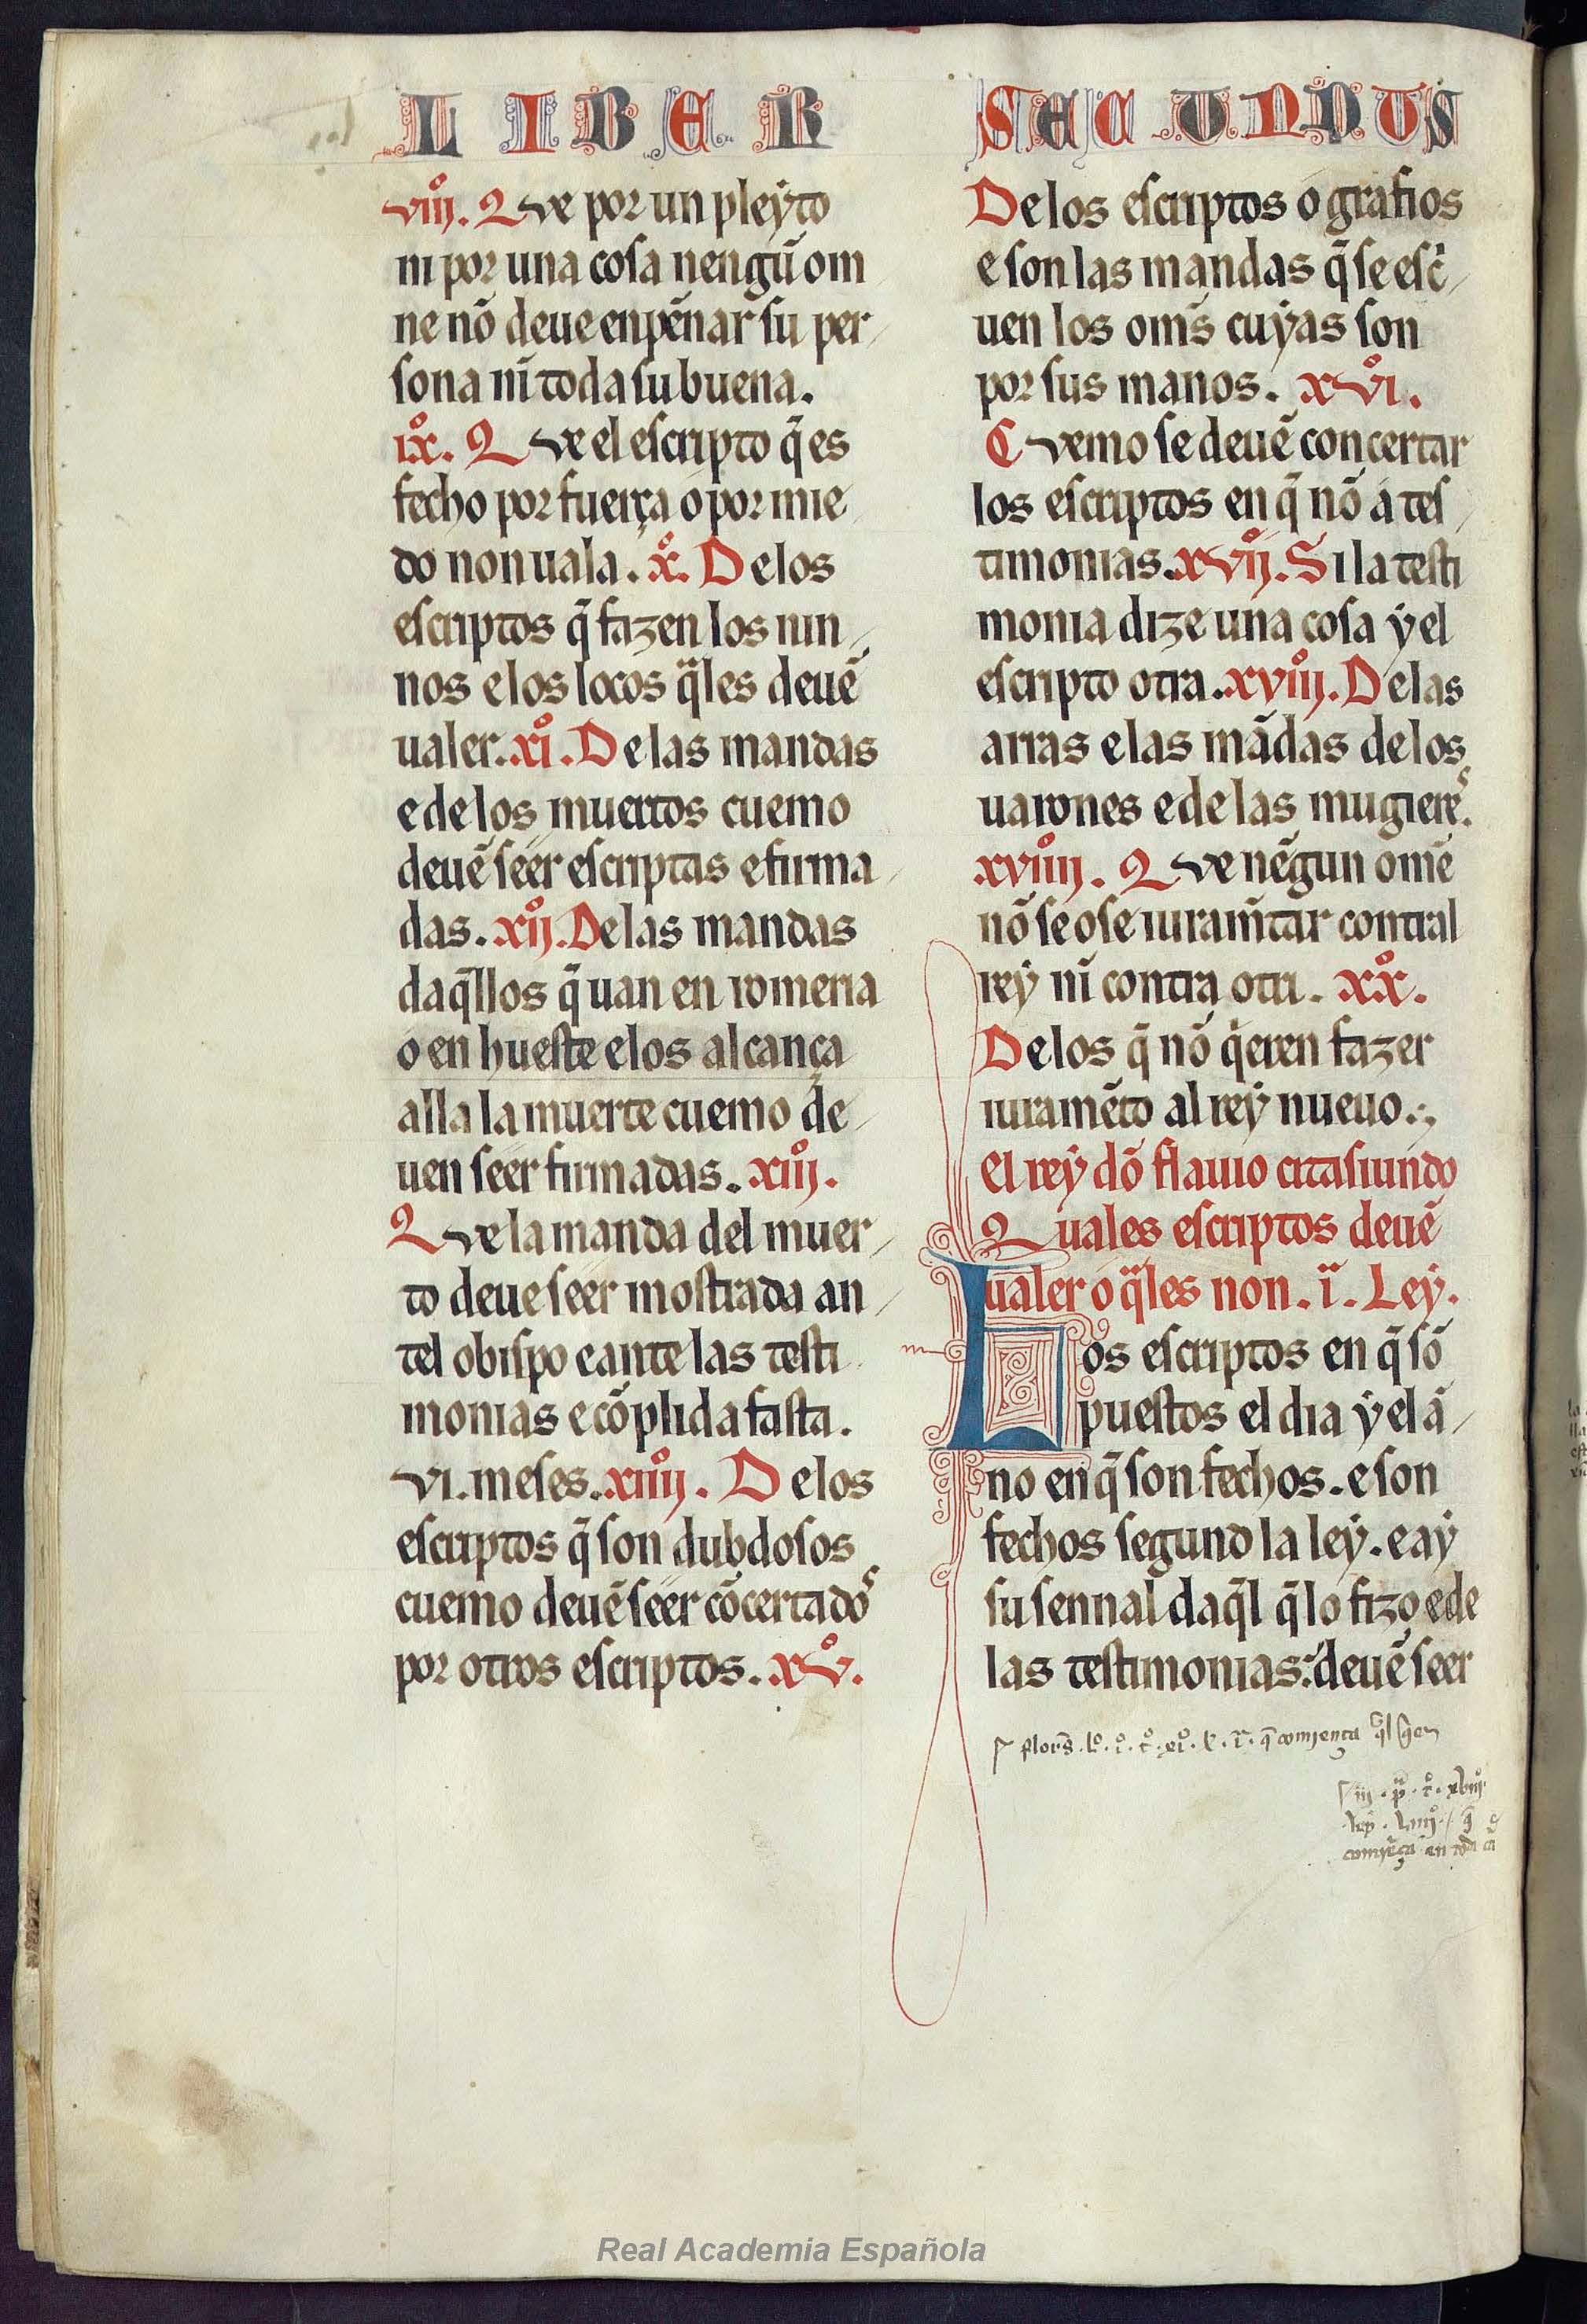 LIBER SECUNDUS
viıȷ̊. Que por un pleẏto
ni por una cosa nengũ om
ne nõ deue enpẽnar su per
sona nĩ toda su buena.
ıx̊. Que el escripto q̃ es
fecho por fuerça o por mie
do non uala. x̊. De los
escriptos q̃ fazen los nin
nos e los locos q̃les deuẽ
ualer. xı̊. De las mandas
e de los muertos cuemo
deuẽ seer escriptas e firma
das. xıȷ̊. De las mandas
daq̃llos q̃ uan en romeria
o en hueste e los alcança
alla la muerte cuemo de
uen seer firmadas. xııȷ̊.
Que la manda del muer
to deue seer mostrada an
tel obispo e ante las testi
monias e cõplida fasta.
vı. meses. xıııȷ̊. De los
escriptos q̃ son dubdosos
cuemo deuẽ seer cõcertados
por otros escriptos. xv̊.
De los escriptos o grafios
e son las mandas q̃ se esc̃
uen los om̃s cuẏas son
por sus manos. xv̊ı.
Cuemo se deuẽ concertar
los escriptos en q̃ nõ a tes
timonias. xvıȷ̊. Si la testi
monia dize una cosa ẏ el
escripto otra. xvııȷ̊. De las
arras e las mãdas de los
uarones e de las mugieres.
xvıııȷ̊. Que nẽgun om̃e
nõ se ose iuram̃tar contral
reẏ nĩ contra otri. xx̊.
De los q̃ nõ q̃eren fazer
iuramẽto al reẏ nueuo.
El reẏ dõ flauio citasiundo
Quales escriptos deuẽ
ualer o q̃les non. ı̃. Leẏ.
Los escriptos en q̃ sõ
puestos el dia ẏ el ã
no en q̃ son fechos. e son
fechos segund la leẏ. e aẏ
su sennal daq̃l q̃ lo fizo e de
las testimonias: deuẽ seer
q̃ comiença
comiẽça en toda
Real Academia Española